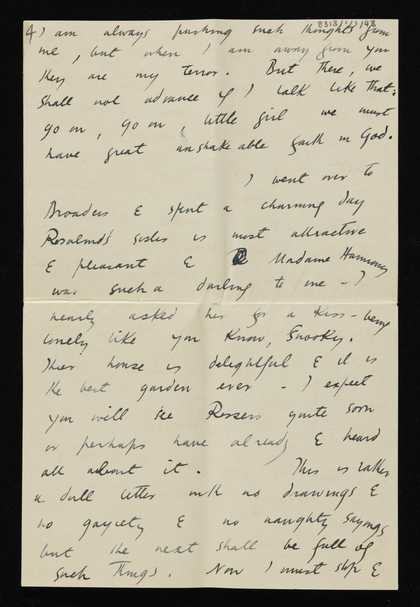 8318/1/1/48
4) am always pushing such thoughts from
me, but when I am away from you
they are my terror. But there, we
shall not advance if I talk like that:
go on, go on, little girl we must
have great unshakeable faith in God.
I went over to
Broadeis & spent a charming day
Rosalind's sister is most attractive
& pleasant & Madame
was such a darling to me - I
nearly asked her for a kiss - being
lonely like you know, Snooky.
Their house is delightful & it is
the best garden ever - I expect
you will see Rossers quite soon
or perhaps have already & heard
all about it. This is rather
a dull letter with no drawings &
no gayety & no naughty sayings
but the next shall be full of
such things. Now I must stop &